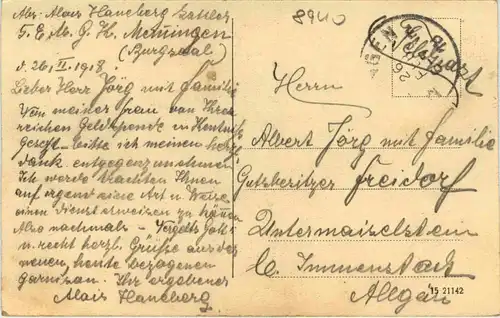 Abs. Alois Haneberg Sattler
G. E. M. G. K. Memmingen
(Burgsaal)
d. 26. II. 1918.
Lieber Herr Jörg mit Familie
Von meiner Frau von Ihrer
reichen Geldspende in Kentniß
gesetzt – bitte ich meinen herzl.
dank entgegenzunehmen
Ich werde trachten Ihnen
auf irgend eine Art u. Weise
einen Dienst erweisen zu können
Also nochmals – Vergelts Gott!
u. recht herzl. Grüße aus der
neuen, heute bezogenen
Garnison. Ihr ergebener
Alois Haneberg
8940
Herrn
Albert Jörg mit Familie
Gutsbesitzer Freidorf
Untermaiselstein
b. Immenstadt
Allgäu
15 21142